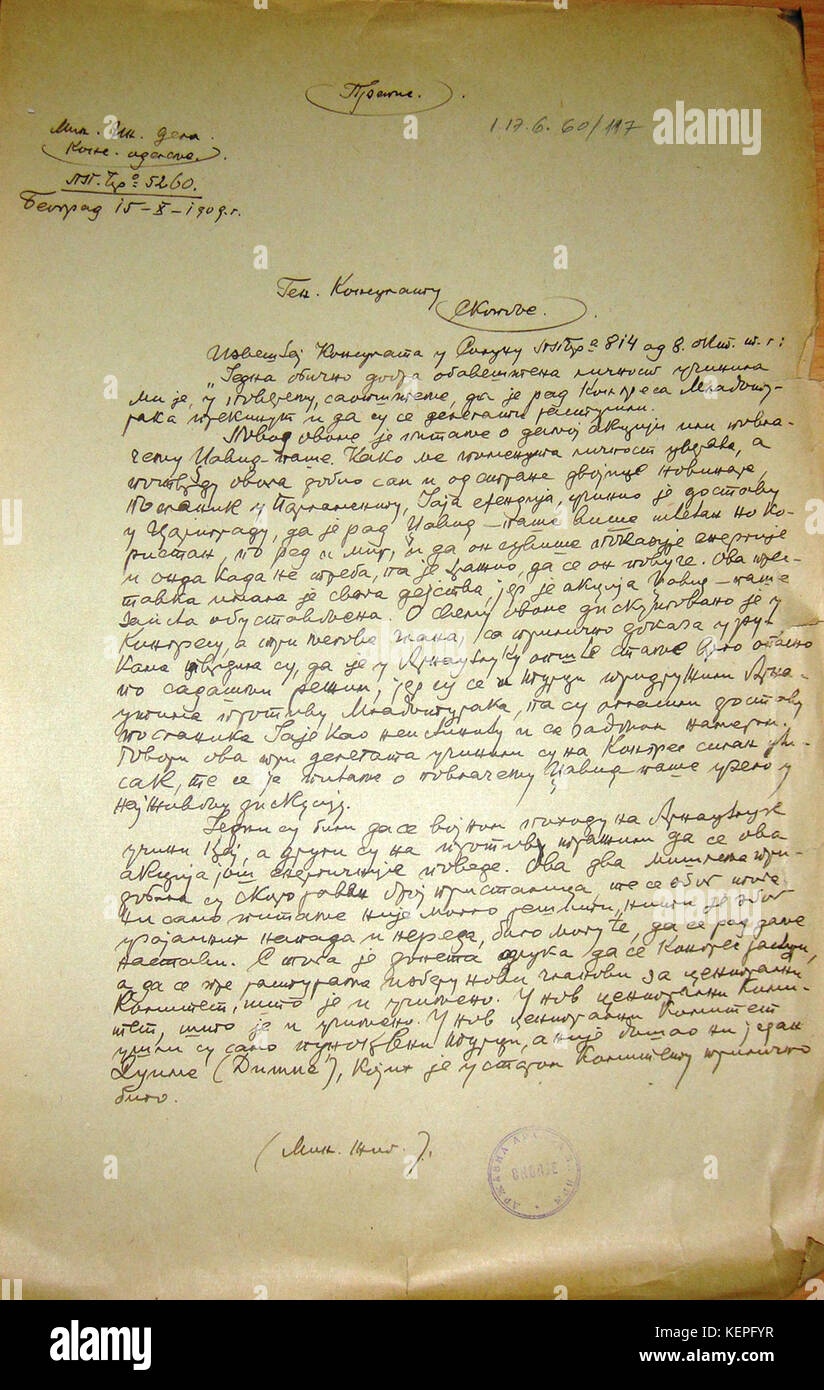 Препис.
I 17. б. 60/117
Мин. Ин. Дела
Конс. оделење.
ПП. Бр. 5260.
Београд 15-X-1909. г.
Ген. Консулату
Скопље.
Извештај Консулата у Солуну ПП Бр 814 од 8. окт. т. г:
„Једна обично добро обавештена личност учинила
ми је, у поверењу, саопштење, да је рад Конгреса Младоту-
рака прекинут и да су се делегати растурили.
Повод овоме је питање о даљој акцији или повла-
чењу Џавид-паше. Како ме поменута личност уверава, а
потврду овога добио сам и од стране двојице новинара,
посланик у Парламенту, Јаја ефендија, учинио је доставу
у Цариграду, да је рад Џавид-паше више штетан но ко-
ристан, по ред и мир, и да он сувише показује енергије
и онда када не треба, па је нужно, да се он повуче. Ова прет-
ставка имала је свога дејства, јер је акција Џавид-паше
заиста обустављена. О свему овоме дискутовано је у
Конгресу, а три његова члана, са прилично доказа у ру-
кама тврдила су, да је у Арнаутлуку опште стање врло опасно
по садашњи режим, јер су се и Турци придружили Арна-
утима противу Младотурака, па су огласили доставу
посланика Јаје као неистиниту и са задњом намером.
Говори ова три делегата учинили су на Конгрес силан ути-
сак, те се је питање о повлачењу Џавид-паше узело у
најживљу дискусију.
Једни су били да се војном походу на Арнаутлук
учини крај, а други су на противу тражили да се ова
акција још енергичније поведе. Ова два мишљења при-
добила су скоро раван број присталица, те се због тога
не само питање није могло решити, нити је због
узајамних напада и нереда, било могуће, да се рад даље
настави. С тога је донета одлука да се Конгрес растури,
а да се пре растурања изберу нови чланови за централни
Комитет, што је и учињено. У нов централни Коми-
тет, што је и учињено. У нов Централни Комитет
ушли су само пуноктвни Турци, а није ушао ни један
Дунме (Дитмје), којих је у старом Комитету прилично
било.
(Мин. Жив.).
ДРЖАВНА АРХИВА Н. Р. МАК
СКОПЈЕ
alamy
a
alamy
Image ID: KEPFYR
www.alamy.com